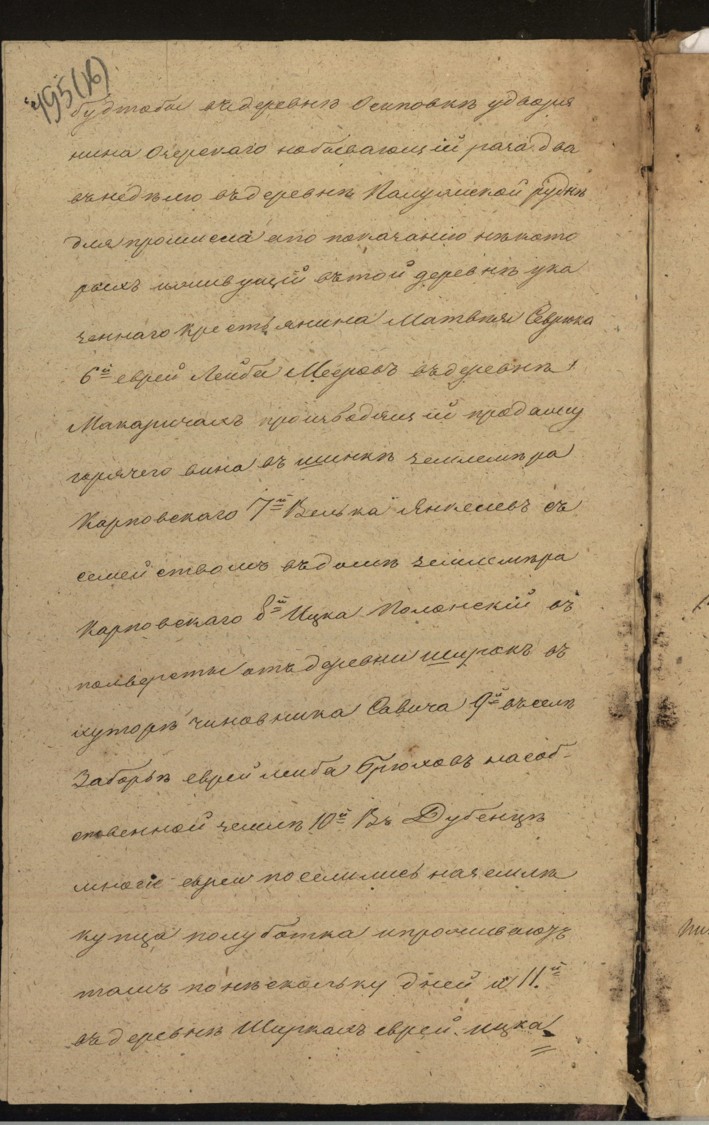 495(16)
будтобы въ деревнѣ Осиповкѣ у дворя
нина Озерскаго набывающій раза два
въ недѣлю въ деревнѣ
для промысла и по показанію нѣкото
рыхъ живущій въ той деревнѣ ука
заннаго крестьянина Матвѣя
6й еврей Лейба Мееровъ въ деревнѣ
Макаричахъ производящій продажу
горячего вина въ шинкѣ землемѣра
Карповскаго 7й Велька Янкелевъ съ
семействомъ въ домѣ землемѣра
Карповскаго 8й Ицка Полонскій въ
полверсты отъ деревни Широкъ въ
хуторѣ чиновника Савича 9й въ селѣ
Заборьѣ еврей Лейба Брюховъ на соб-
ственной землѣ 10й Въ Дубенцѣ
многіе евреи поселились на землѣ
купца Полуботка и проживаютъ
тамъ по нѣскольку дней и 11.й
въ деревнѣ Ширкахъ еврей Ицка